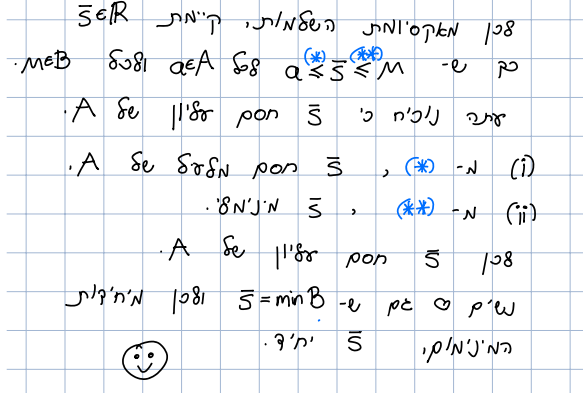 לכן מאקסיומת השלמות, קיימת s̄∈ℝ
כך ש- a ≤(*) s̄ ≤(**) M לכל a∈A ולכל M∈B.
עתה נוכיח כי s̄ חסם עליון של A.
(i) מ- (*), s̄ חסם מלעיל של A.
(ii) מ- (**), s̄ מינימלי.
לכן s̄ חסם עליון של A.
נשים ♡ גם ש- s̄ = min B ולכן מיחידות
המינימום, s̄ יחיד.